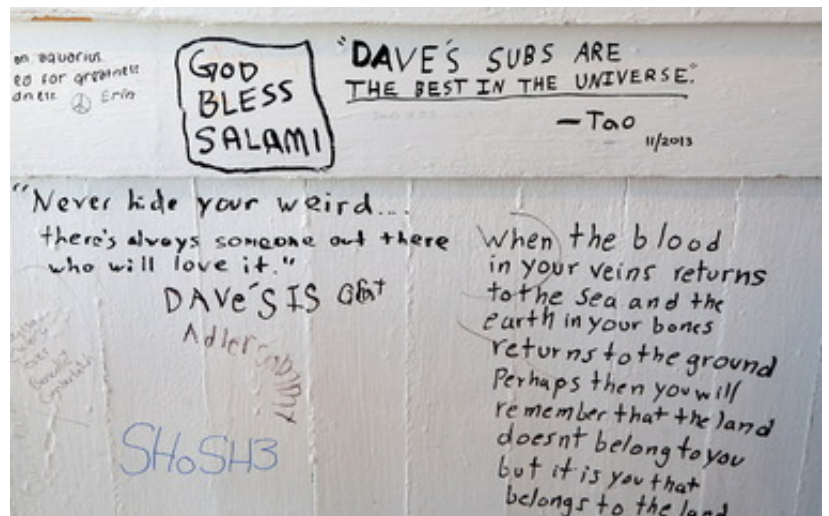 an aquarius
ed for greatness
Erin
GOD
BLESS
SALAMI
"DAVE'S SUBS ARE
THE BEST IN THE UNIVERSE."
—Tao
11/2013
"Never hide your weird....
there's always someone out there
who will love it."
DAVE'S IS
Adler
SHOSH3
When the blood
in your veins returns
to the sea and the
earth in your bones
returns to the ground
Perhaps then you will
remember that the land
doesnt belong to you
but it is you that
belongs to the land